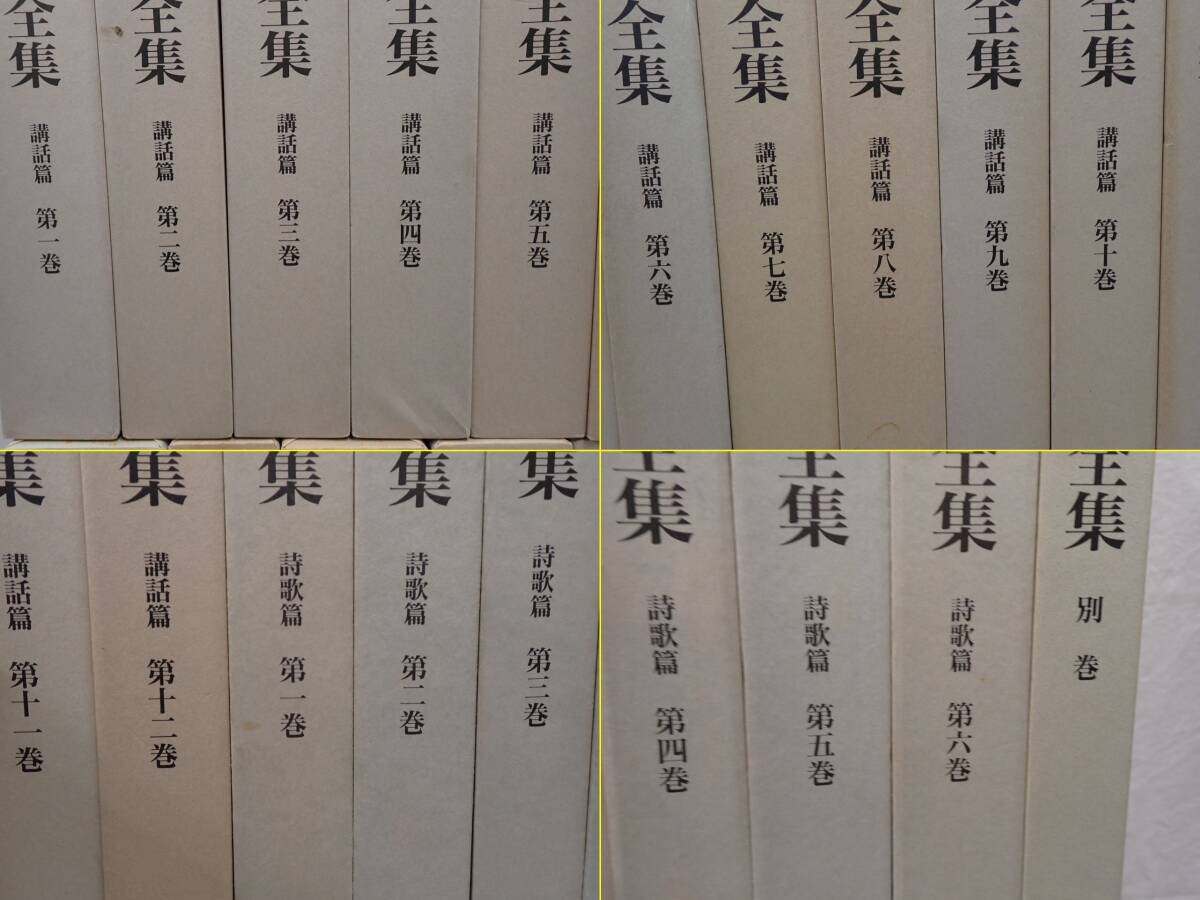 全集 講話篇 第一巻
全集 講話篇 第二巻
全集 講話篇 第三巻
全集 講話篇 第四巻
全集 講話篇 第五巻
全集 講話篇 第六巻
全集 講話篇 第七巻
全集 講話篇 第八巻
全集 講話篇 第九巻
全集 講話篇 第十巻
集 講話篇 第十一巻
集 講話篇 第十二巻
集 詩歌篇 第一巻
集 詩歌篇 第二巻
集 詩歌篇 第三巻
全集 詩歌篇 第四巻
全集 詩歌篇 第五巻
全集 詩歌篇 第六巻
全集 別巻